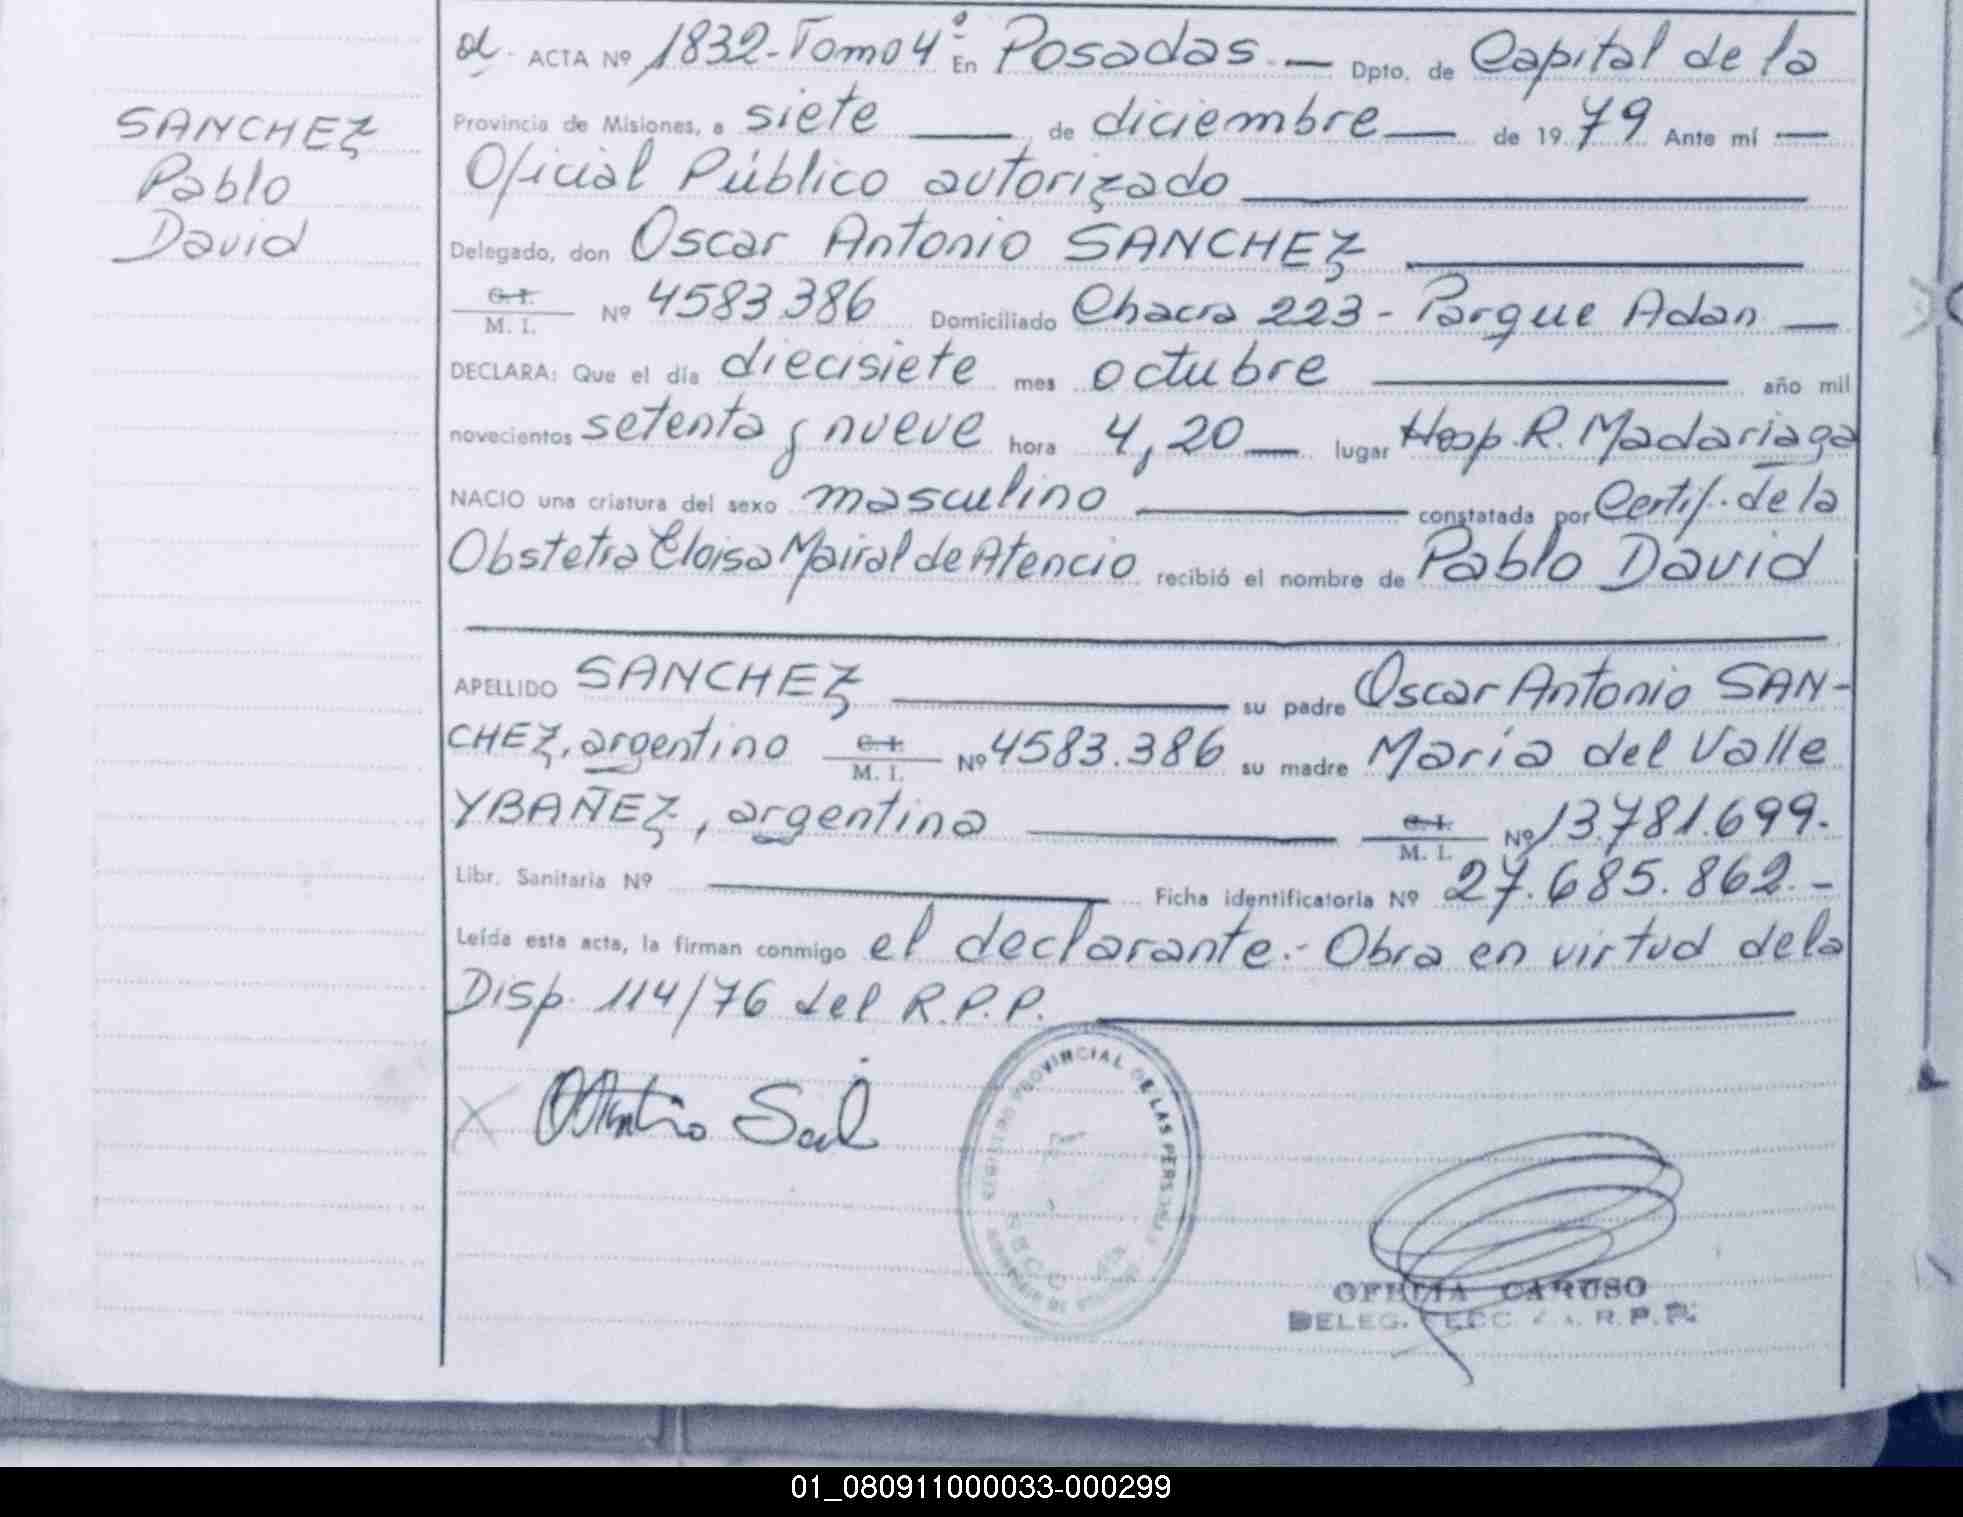 ACTA Nº 1832-Tomo 4º En Posadas.— Dpto. de Capital de la
SANCHEZ
Pablo
David
Provincia de Misiones, a siete — de diciembre — de 19 79 Ante mí —
Oficial Público autorizado
Delegado, don Oscar Antonio SANCHEZ
C. I.
M. I. Nº 4583386 Domiciliado Chacra 223 - Parque Adan —
DECLARA: Que el día diecisiete mes octubre año mil
novecientos setenta y nueve hora 4,20 — lugar Hosp. R. Madariaga
NACIO una criatura del sexo masculino constatada por Certif. de la
Obstetra Eloisa Mairal de Atencio recibió el nombre de Pablo David
APELLIDO SANCHEZ su padre Oscar Antonio SAN-
CHEZ, argentino C. I. M. I. Nº 4583.386 su madre María del Valle
YBAÑEZ, argentina C. I. M. I. Nº 13.781.699.
Libr. Sanitaria Nº Ficha identificatoria Nº 27.685.862.-
Leída esta acta, la firman conmigo el declarante.- Obra en virtud de la
Disp. 114/76 del R.P.P.
REGISTRO PROVINCIAL DE LAS PERSONAS
OFELIA CARUSO
DELEG. R.P.P.
01_080911000033-000299